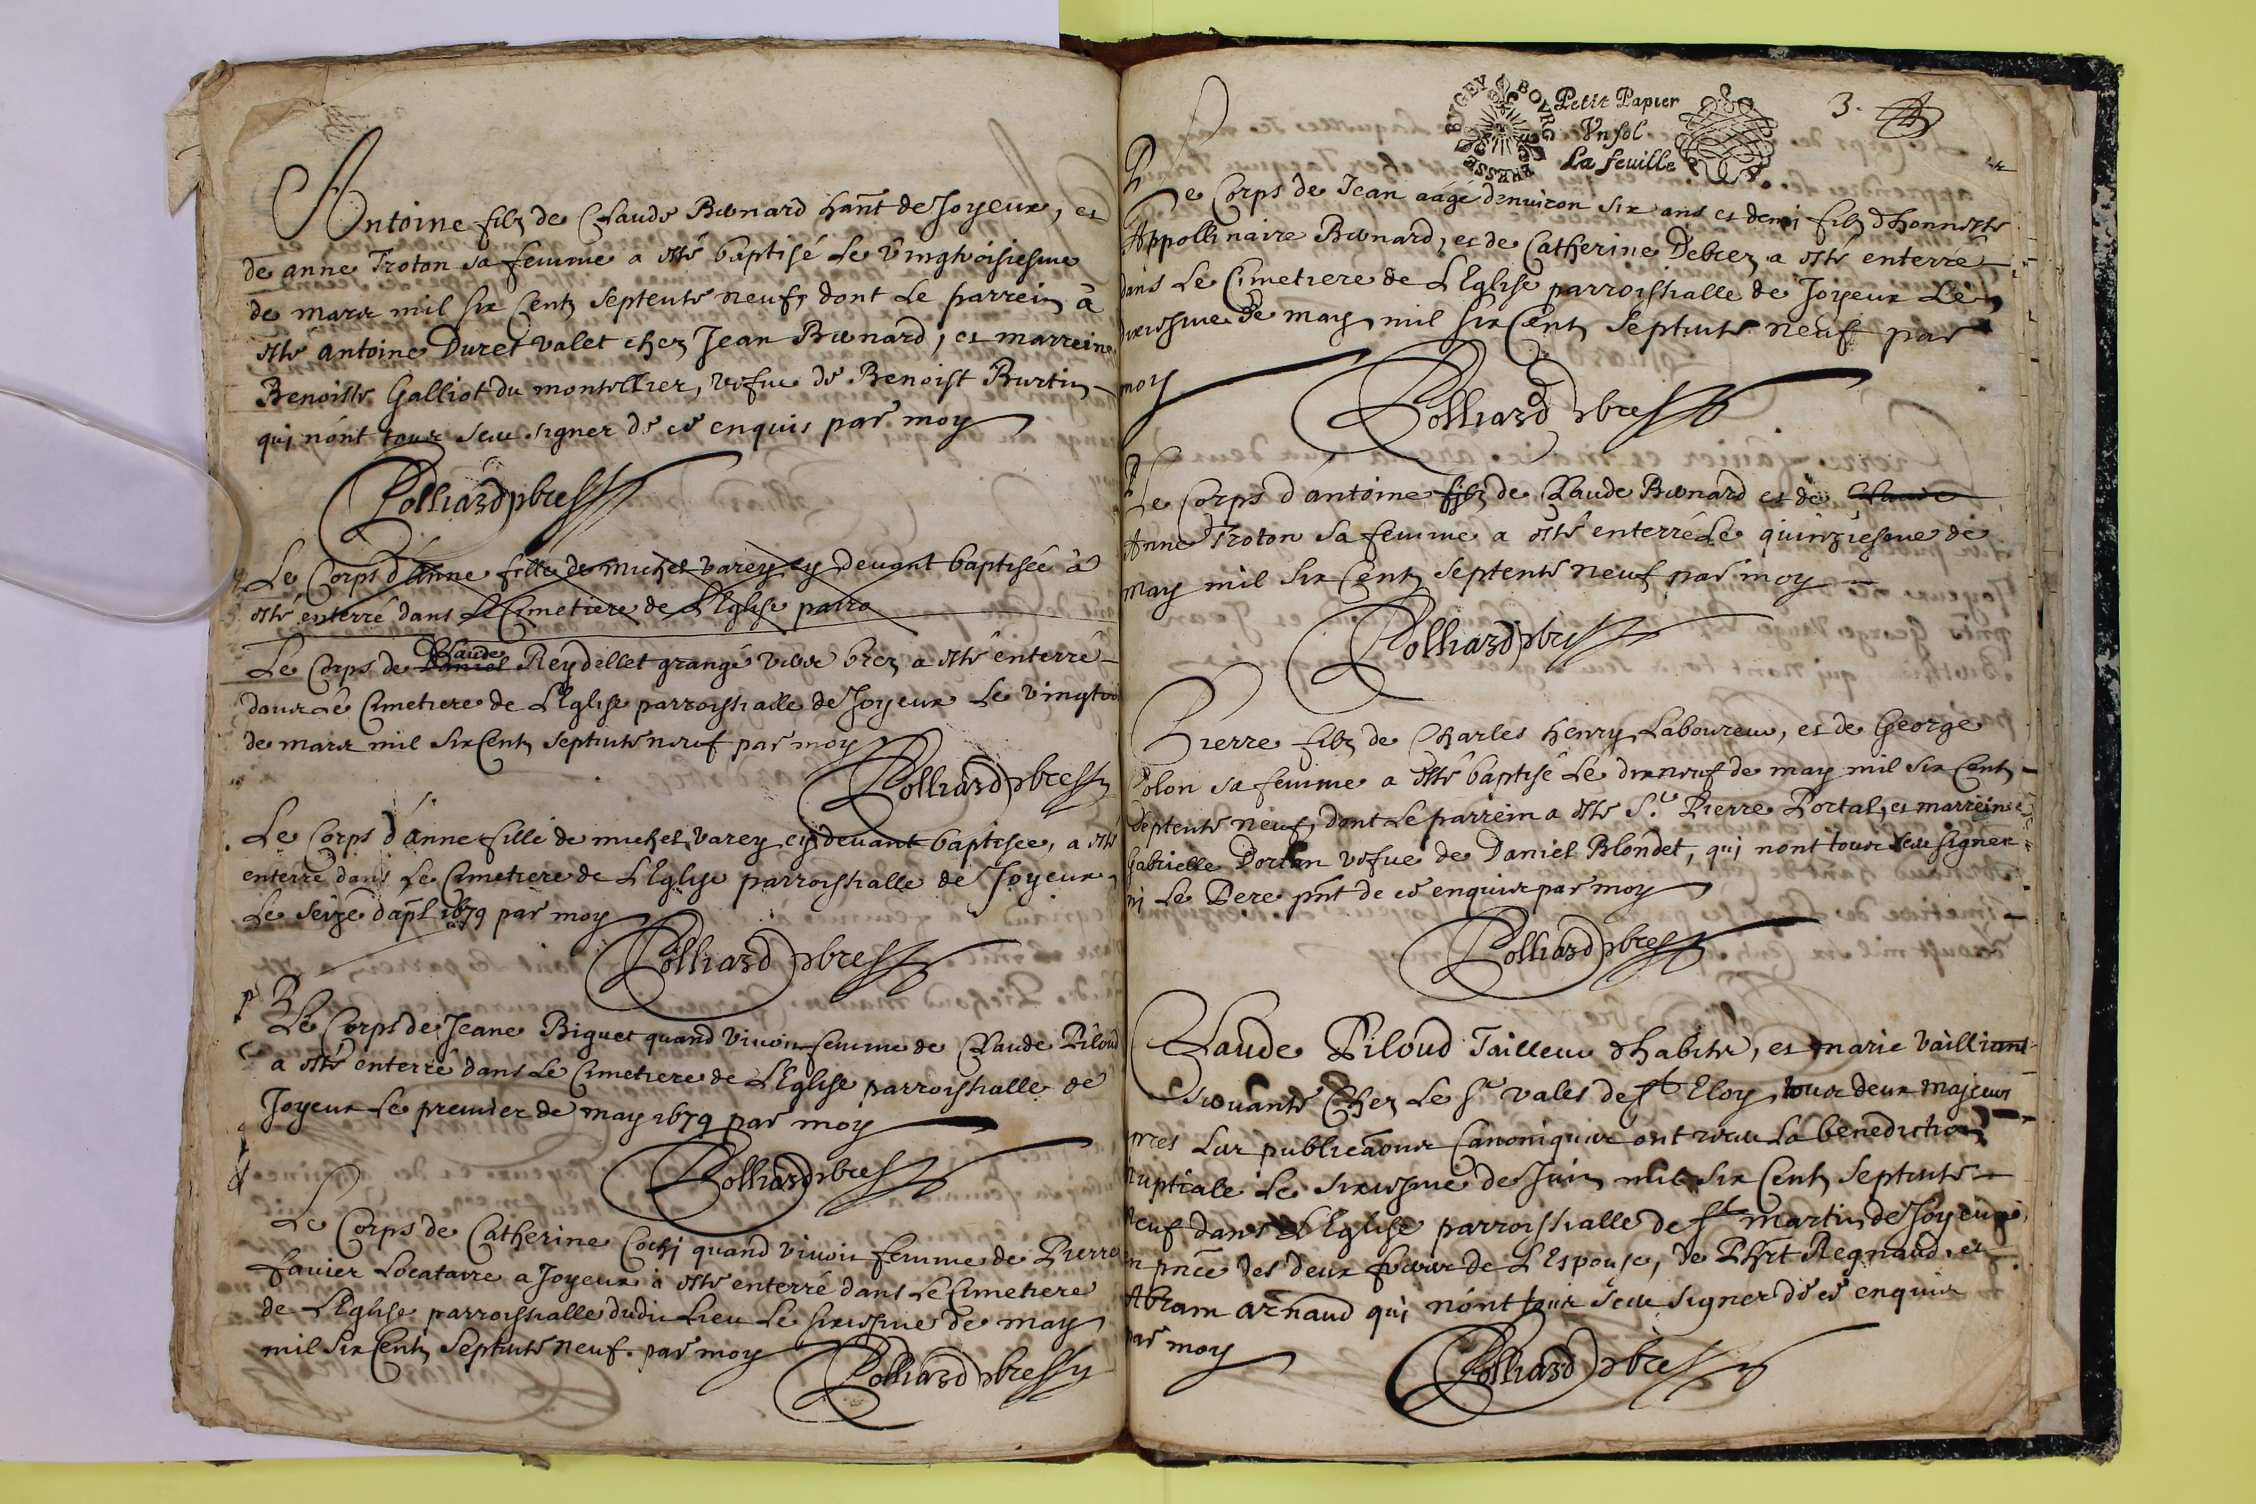 Antoine filz de Claude Bernard hant de Joyeux, et
de anne Troton sa femme a esté baptisé Le vingtroisiesme
de mars mil six Centz septente neuf, dont Le parrein à
esté antoine Duret valet chez Jean Bernard, et marreine
Benoiste Galliot du montellier, vefue de Benoist Burtin
qui nónt tous sceu signer de ce enquis par moy
Polliard pbre
Le Corps d'Anne fille de michel varey cy devant baptisée à
esté enterré dans Le Cimetiere de L'Eglise parro
Claude
Le Corps de Daniel Reydellet grangé a esté enterré
dans Le Cimetiere de L'Eglise parroissialle de Joyeux Le
de mars mil six Centz septente neuf par moy
Polliard pbre
Le Corps d'anne fille de michel varey cy devant baptisée, a esté
enterré dans Le Cimetiere de L'Eglise parroissialle de Joyeux
Le seize d'apl 1679 par moy
Polliard pbre
Le Corps de Jeane Biguet quand vivoit femme de Claude Piloud
a esté enterré dans Le Cimetiere de L'Eglise parroissialle de
Joyeux Le premier de may 1679 par moy
Polliard pbre
Le Corps de Catherine Cochj quand vivoit femme de Pierre
favier Locataire a Joyeux à esté enterré dans Le Cimetiere
de L'Eglise parroissialle dudit Lieu Le sixiesme de may
mil six Centz septente neuf. par moy
Polliard pbre
BOVRG BRESSE BVGEY
Petit Papier
Vn sol
La feuille
3.
Le Corps de Jean aágé d'environ six ans et demi filz d'honneste
Appollinaire Bernard, et de Catherine Debrez a esté enterré
dans Le Cimetiere de L'Eglise parroissialle de Joyeux Le
de may mil six Centz septente neuf par
moy
Polliard pbre
Le Corps d'antoine filz de Claude Bernard et de Claude
Anne Troton sa femme a esté enterré Le quinziesme de
may mil six Centz septente neuf par moy
Polliard pbre
Pierre filz de Charles henry Laboureur, et de George
Polon sa femme a esté baptisé Le dixneuf de may mil six Centz
septente neuf, dont Le parrein a esté Sr. Pierre Portal, et marreine
Gabrielle vefue de Daniel Blondet, qui nont tous sceu signer
ni Le Pere pnt de ce enquis par moy
Polliard pbre
Claude Piloud Tailleur d'habits, et marie vailliant
servante Chez Le Sr vales de St Eloy, tous deux majeurs
apres Leur publicãons Canoniques ont receu La benediction
nuptiale Le sixiesme de Juin mil six Centz septente
neuf dans L'Eglise parroissialle de St martin de Joyeux
en pñce des deux freres de L'Espouse, de Phrt Regnaud, et
Abram arnaud qui nónt tous sceu signer de ce enquis
par moy
Polliard pbre